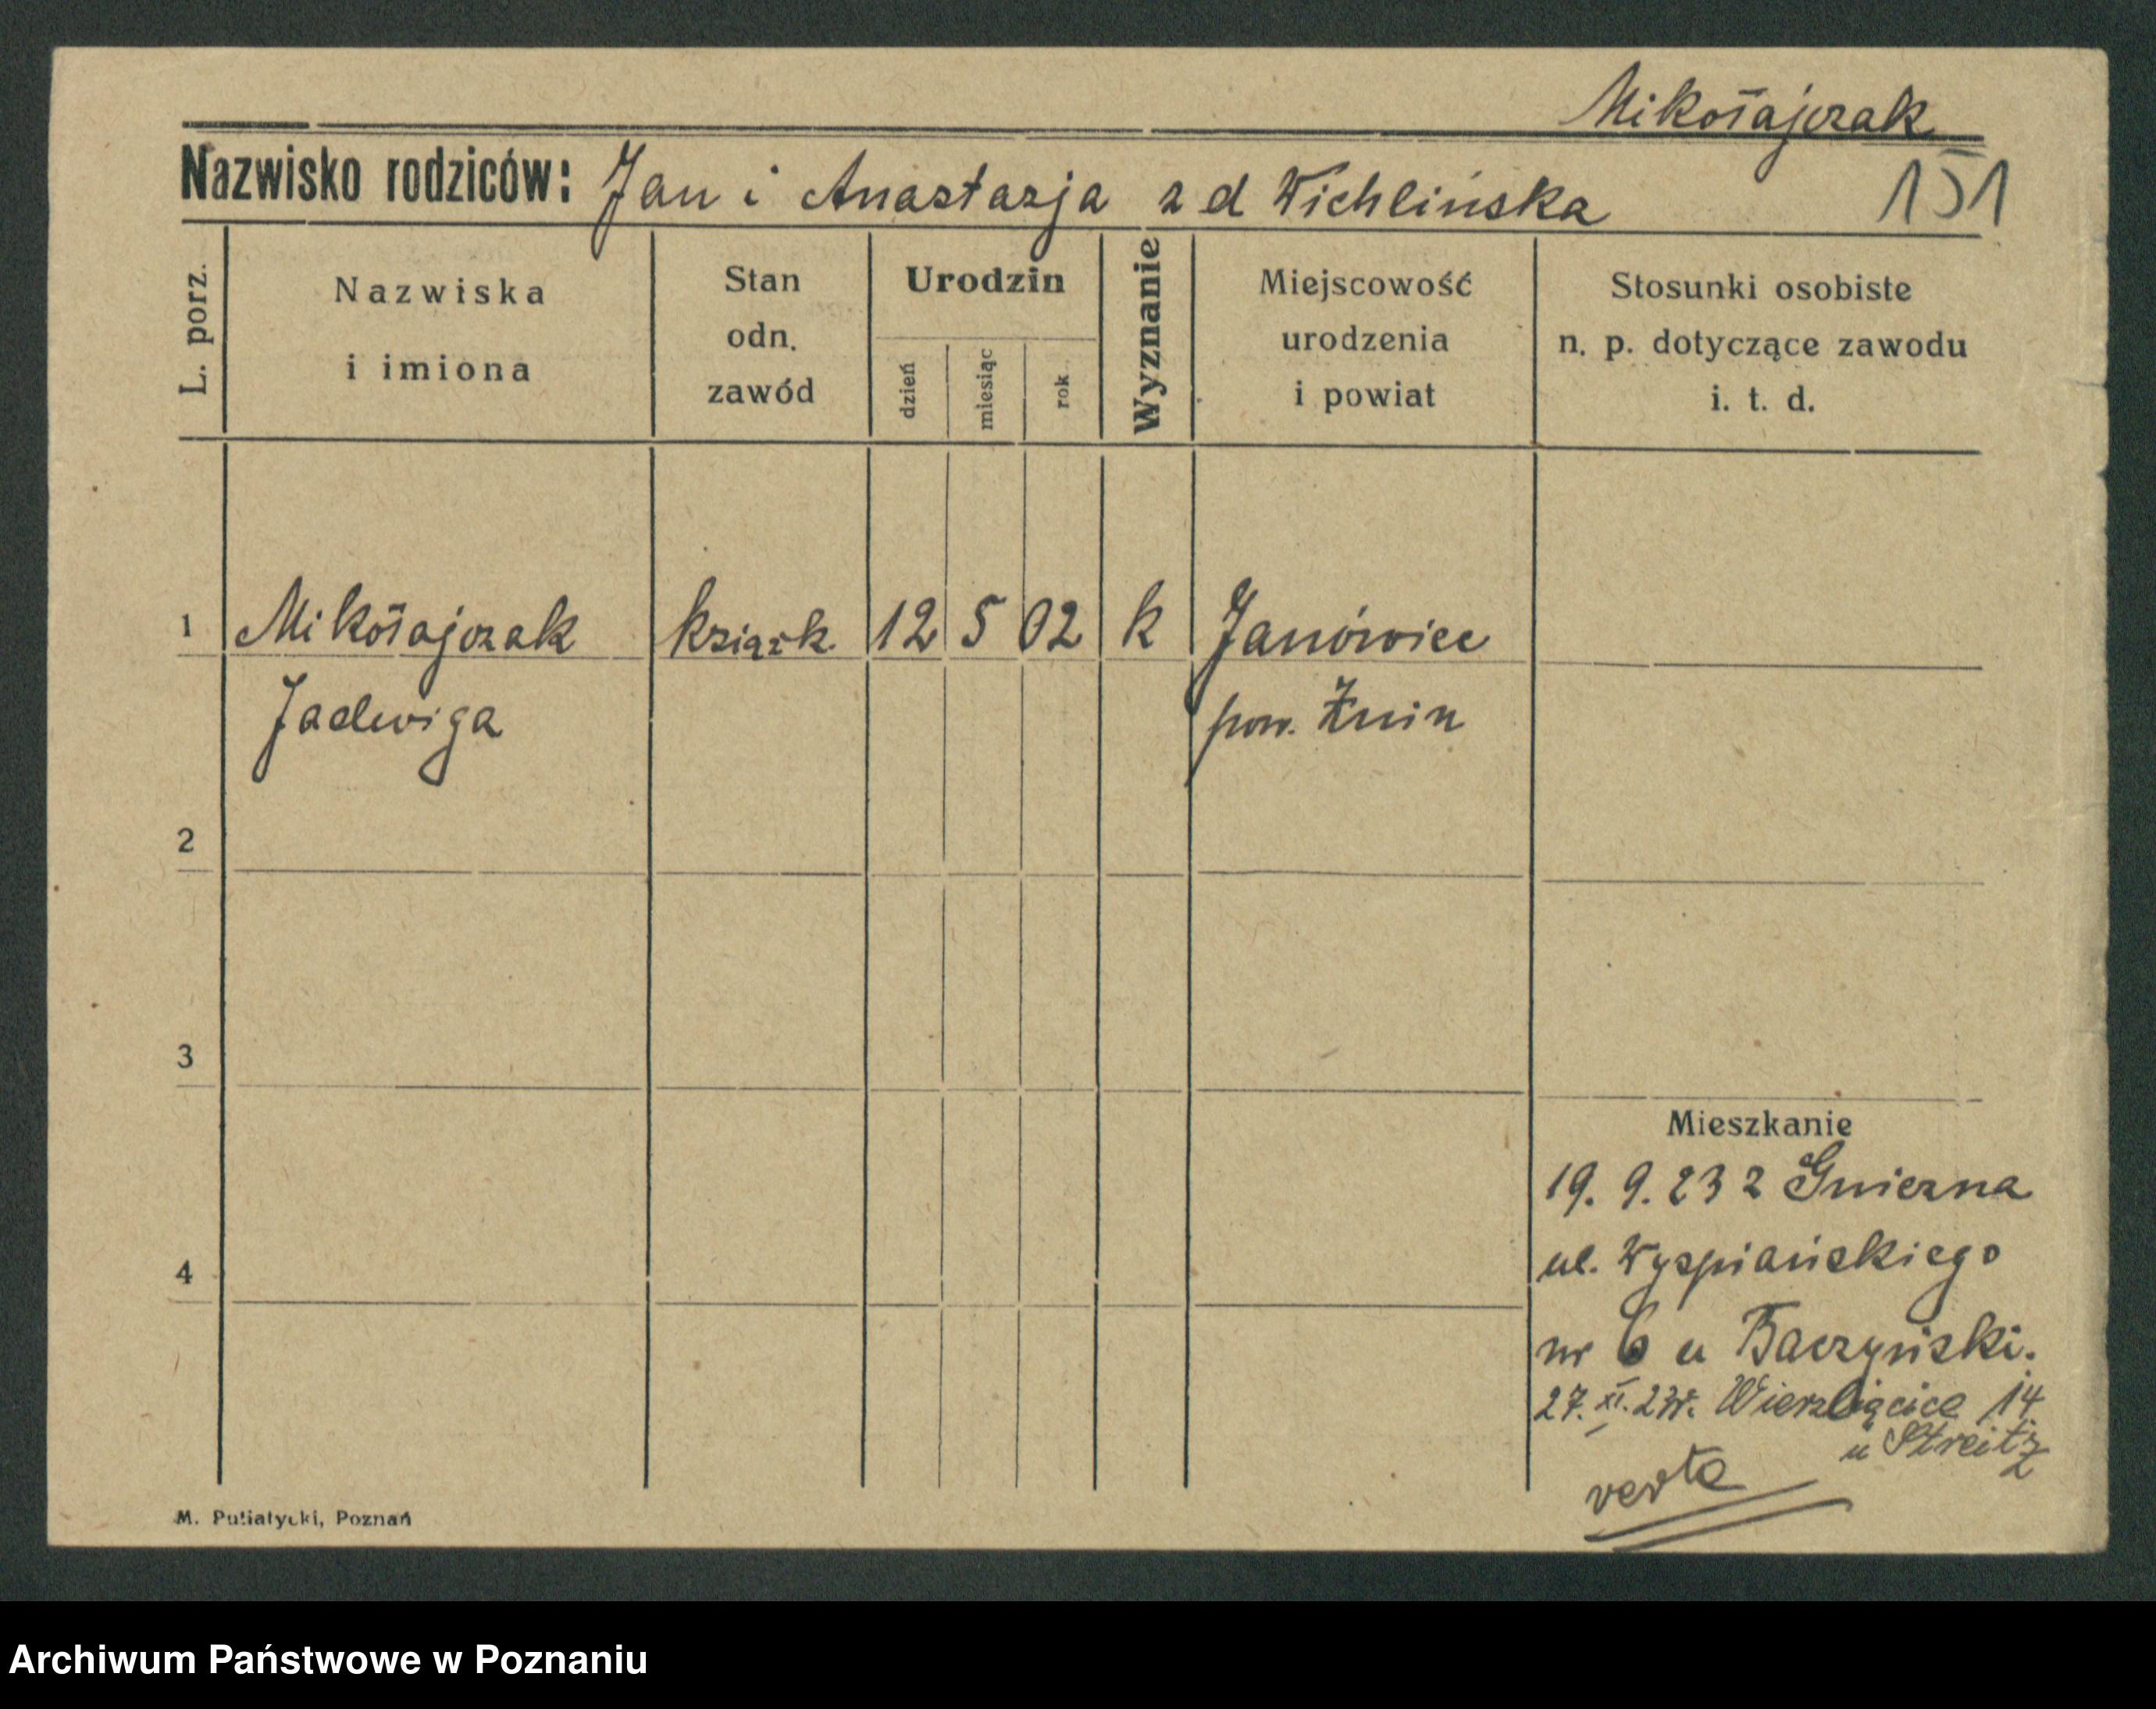 Mikołajczak
Nazwisko rodziców: Jan i Anastazja z d Wichlińska
151
L. porz.
Nazwiska
i imiona
Stan
odn.
zawód
Urodzin
dzień
miesiąc
rok
Wyznanie
Miejscowość
urodzenia
i powiat
Stosunki osobiste
n. p. dotyczące zawodu
i. t. d.
1 Mikołajczak książk. 12 5 02 k Janówiec
Jadwiga pow. Żnin
2
3
Mieszkanie
19. 9. 23 z Gniezna
ul. Wyspiańskiego
4
nr 6 u Baczyński.
27. XI. 23r. Wierzbięcice 14
u Streitz
verte
M. Putiatycki, Poznań
Archiwum Państwowe w Poznaniu